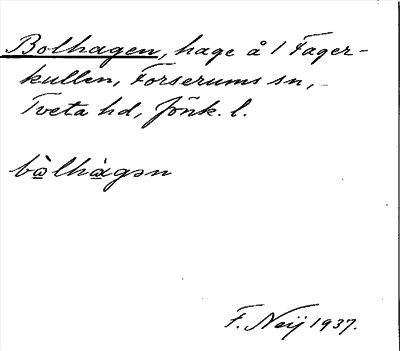 Bolhagen, hage å 1 Fager-
kullen, Forserums sn,
Tveta hd, Jönk. l.
bålhàgən
F. Neij 1937.